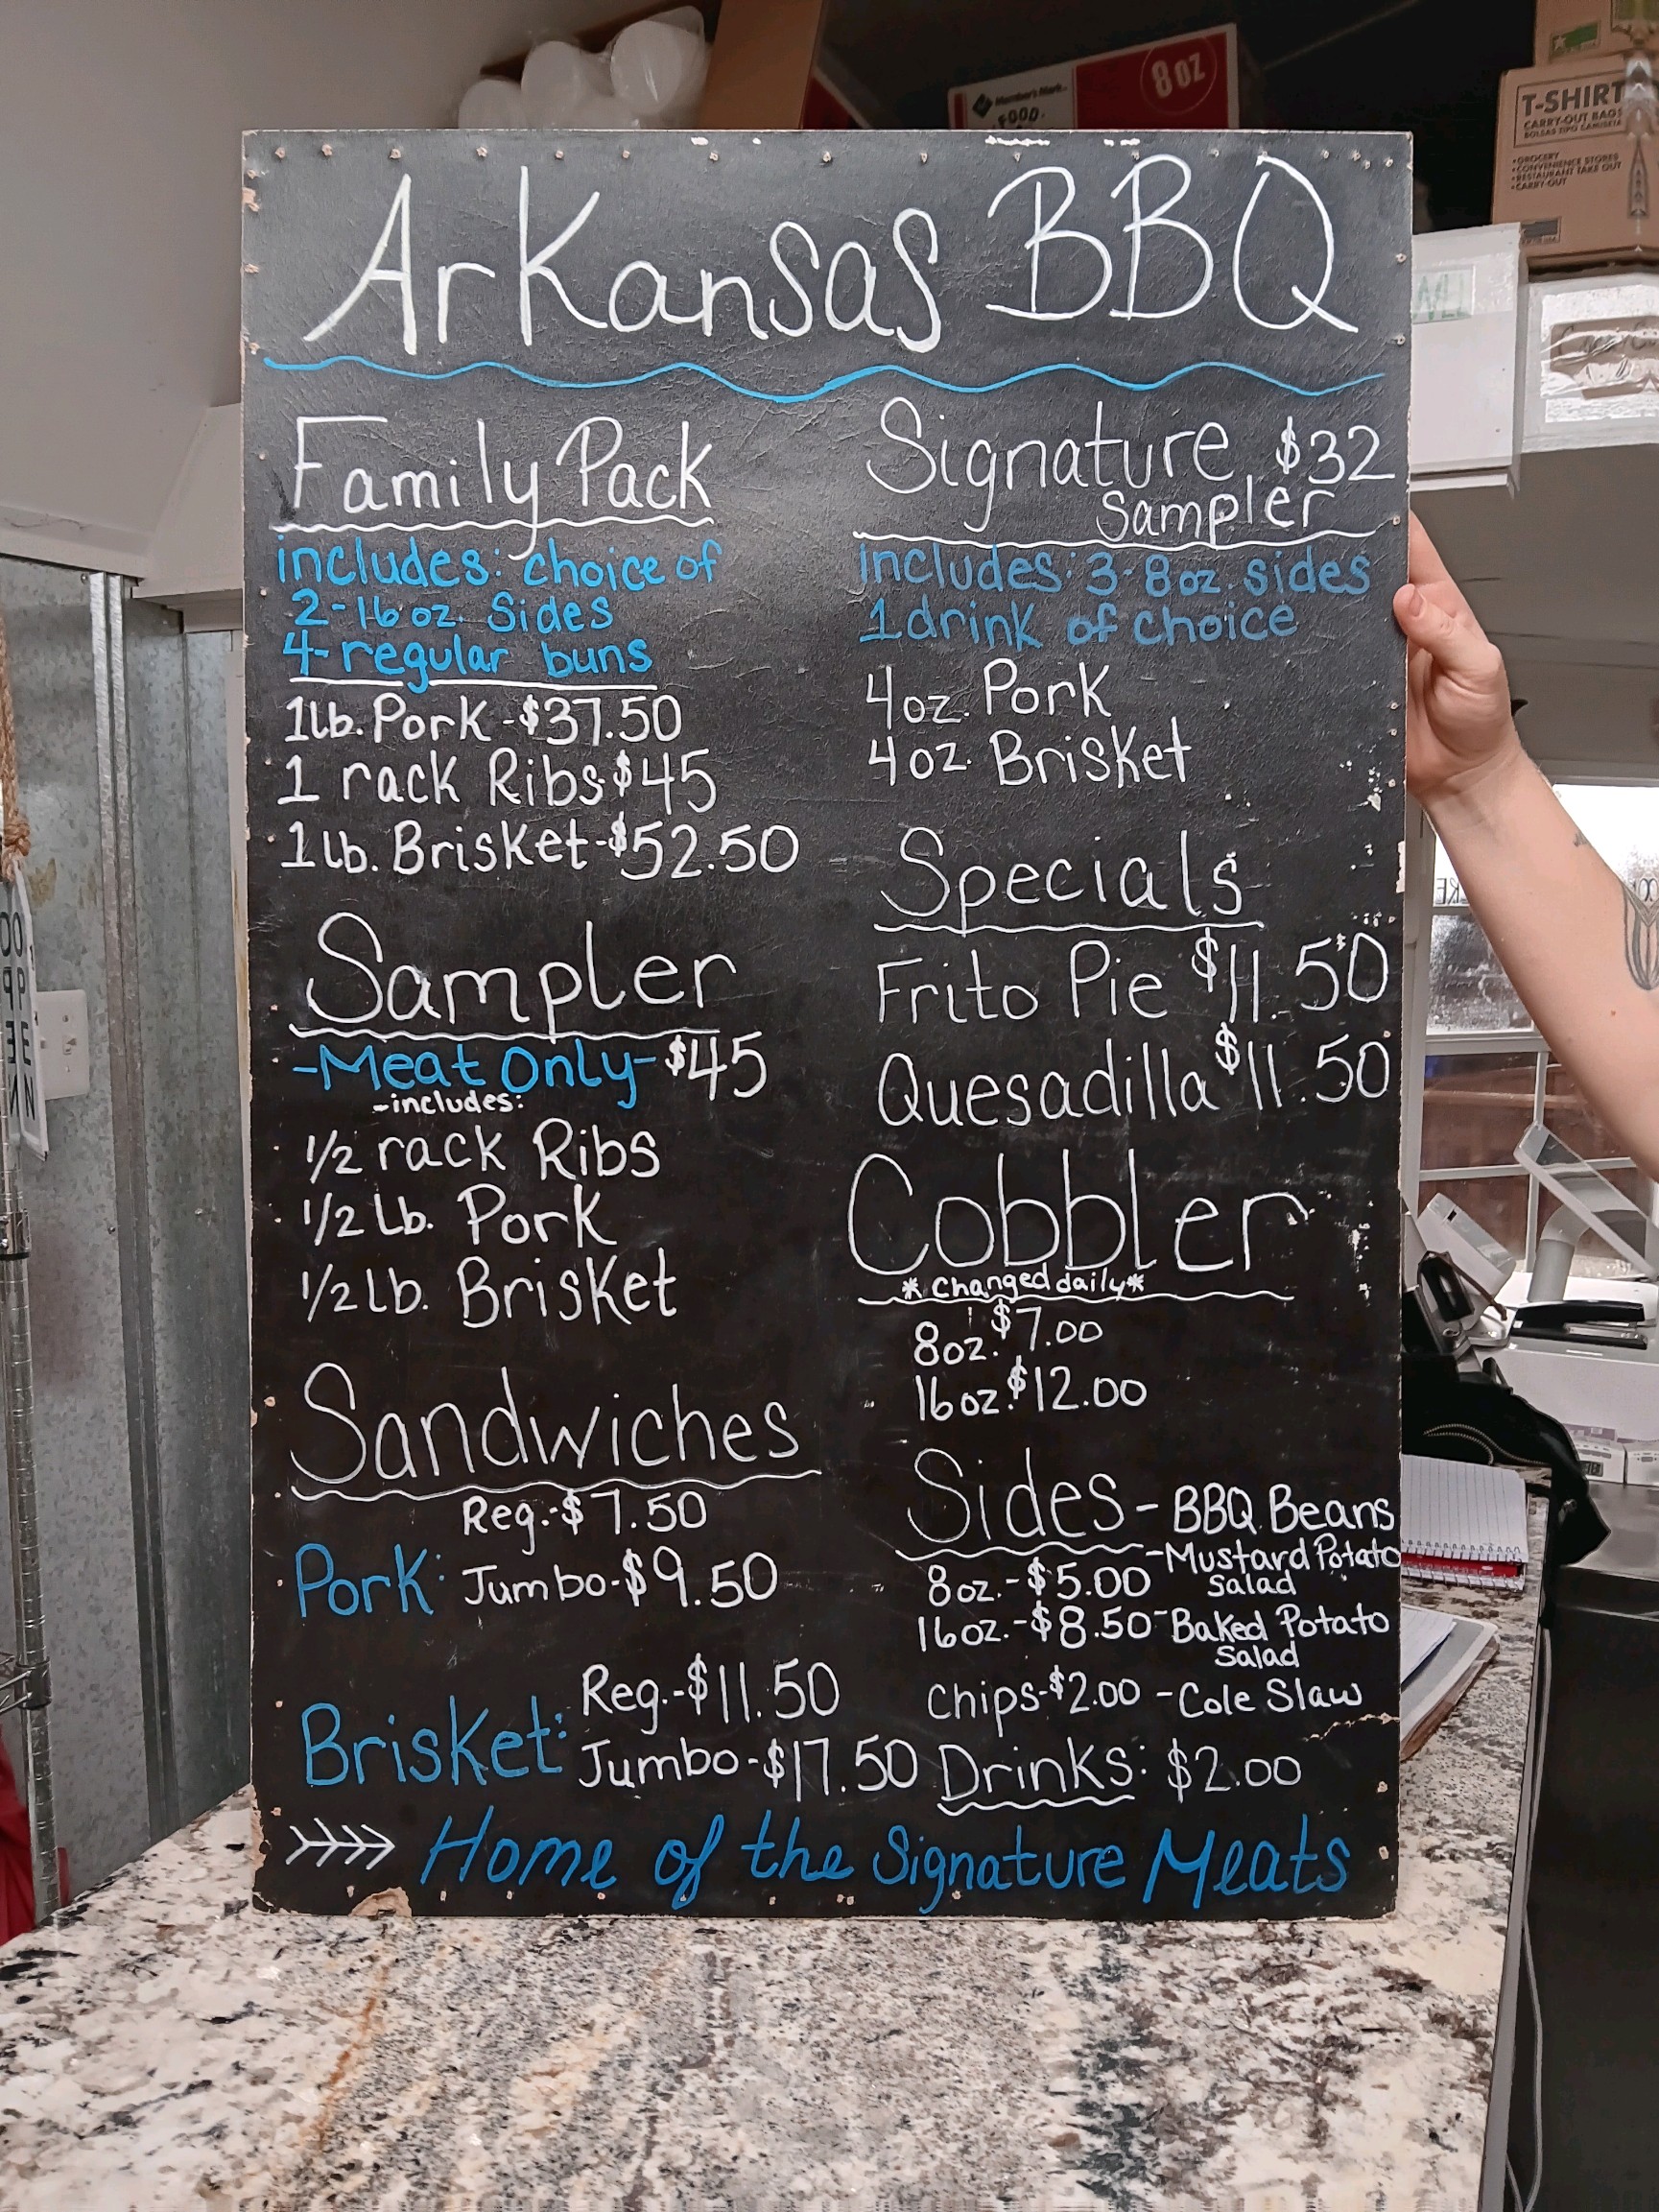 Member's Mark
FOOD
8 OZ
T-SHIRT
CARRY-OUT BAGS
BOLSAS TIPO CAMISETA
•GROCERY
•CONVENIENCE STORES
•RESTAURANT TAKE OUT
•CARRY-OUT
Arkansas BBQ
Family Pack
includes: choice of
2-16 oz. Sides
4-regular buns
1lb. Pork-$37.50
1 rack Ribs-$45
1lb. Brisket-$52.50
Sampler
-Meat Only-$45
-includes:
1/2 rack Ribs
1/2 Lb. Pork
1/2 lb. Brisket
Sandwiches
Reg.-$7.50
Pork: Jumbo-$9.50
Reg.-$11.50
Brisket: Jumbo-$17.50
Signature $32
Sampler
includes: 3-8oz. sides
1 drink of choice
4oz. Pork
4oz. Brisket
Specials
Frito Pie $11.50
Quesadilla $11.50
Cobbler
*Changed daily*
8oz. $7.00
16oz. $12.00
Sides-BBQ Beans
-Mustard Potato
Salad
8oz.-$5.00
16oz.-$8.50-Baked Potato
Salad
Chips-$2.00 -Cole Slaw
Drinks: $2.00
Home of the Signature Meats